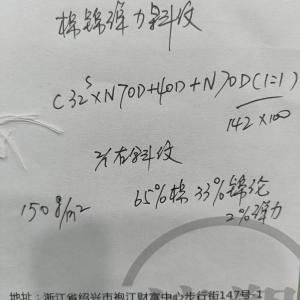 棉锦弹力斜纹
C32ˢ×N70D+40D+N70D(1=1)
142×100
2/1右斜纹
65%棉 33%锦纶
2%弹力
150g/m²
地址：浙江省绍兴市袍江财富中心步行街147号-1